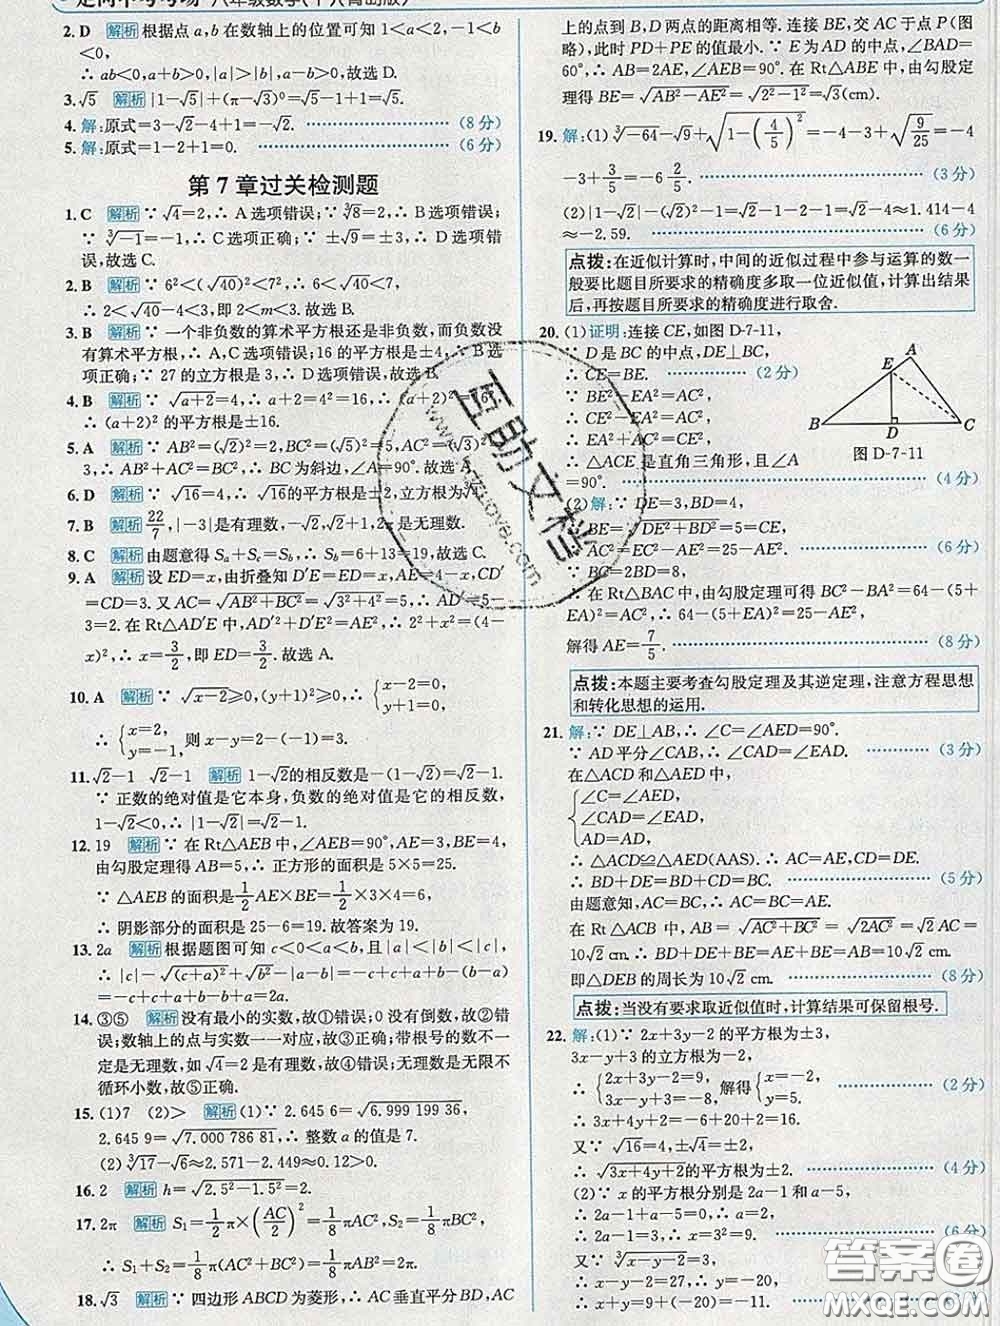 走向中考考场 八年级数学(下)(青岛版)
2. D 解析 根据点a,b在数轴上的位置可知1<a<2,-1<b
<0,
∴ ab<0,a+b>0,|a|>|b|,a-b>0.故选D.
3. √5 解析 |1-√5|+(π-√3)⁰=√5-1+1=√5.
4. 解:原式=3-√2-4+1=-√2. (8分)
5. 解:原式=1-2+1=0. (6分)
第7章过关检测题
1. C 解析 ∵ √4=2,∴ A选项错误;∵ ∛8=2,∴ B选项错误;
∵ ∛-1=-1,∴ C选项正确;∵ ±√9=±3,∴ D选项错
误.故选C.
2. B 解析 ∵ 6²<(√40)²<7²,∴ 6<√40<7,
∴ 2<√40-4<3,即2<m<3.故选B.
3. B 解析 ∵ 一个非负数的算术平方根还是非负数,而负数
没有算术平方根,∴ A,C选项错误;16的平方根是±4,∴ B选
项正确;∵ 27的立方根是3,∴ D选项错误.故选B.
4. B 解析 ∵ √(a+2)=4,∴ a+2=4²=16,∴ (a+2)²=16²,
∴ (a+2)²的平方根是±16.
5. A 解析 ∵ AB²=(√2)²=2,BC²=(√5)²=5,AC²=(√3)²=
3,∴ AB²+AC²=BC²,∴ BC为斜边,∠A=90°.故选A.
6. D 解析 ∵ √16=4,∴ √16的平方根是±2,立方根为∛4.
7. B 解析 22/7,|-3|是有理数,-√2,√2+1,2π是无理数.
8. C 解析 由题意得Sₐ+S꜀=S_b,∴ S_b=6+13=19.故选C.
9. A 解析 设ED=x,由折叠知D′E=ED=x,CD′
=CD=3.又AC=√(AB²+BC²)=√(3²+4²)=5,∴ AD′=5-
3=2.在Rt△AD′E中,AD′²+D′E²=AE²,∴ 2²+x²=(4-
x)²,∴ x=3/2,即ED=3/2.故选A.
10. A 解析 ∵ √(x-2)≥0,(y+1)²≥0,∴ {x-2=0, y+1=0,
∴ {x=2, y=-1, 则x-y=2-(-1)=3.
11. √2-1 √2-1 解析 1-√2的相反数是-(1-√2)=√2-1.
∵ 正数的绝对值是它本身,负数的绝对值是它的相反数,
1-√2<0,∴ |1-√2|=√2-1.
12. 19 解析 ∵ 在Rt△AEB中,∠AEB=90°,AE=3,BE=4,
由勾股定理得AB=5,∴ 正方形的面积是5×5=25.
∵ △AEB的面积是1/2AE×BE=1/2×3×4=6,
∴ 阴影部分的面积是25-6=19.故答案为19.
13. 2a 解析 根据题图可知c<0<a<b,且|a|<|b|<|c|,
∴ |c|-√(c+a)²+√b²-|a-b|=-c+(c+a)+b+(a-b)
=-c+c+a+b+a-b=2a.
14. ③⑤ 解析 没有最小的实数,故①错误;0没有倒数,故②错
误;数轴上的点与实数一一对应,故③正确;带根号的数不一
定是无理数,如√4=2是有理数,故④错误;无理数是无限不
循环小数,故⑤正确.
15. (1)7 (2)> 解析 (1)∵ 2.645 6=√6.999 199 36,
2.645 9=√7.000 786 81,∴ 整数a的值是7.
(2)∛17-√6≈2.571-2.449=0.122>0.
16. 2 解析 h=√(2.5²-1.5²)=2.
17. 2π 解析 S₁=1/2π×(AC/2)²=1/8πAC²,S₂=1/8πBC²,
∴ S₁+S₂=1/8π(AC²+BC²)=1/8πAB²=2π.
18. √3 解析 ∵ 四边形ABCD为菱形,∴ AC垂直平分BD,AC
上的点到B,D两点的距离相等.连接BE,交AC于点P(图
略),此时PD+PE的值最小.∵ E为AD的中点,∠BAD=
60°,∴ AB=2AE,∠AEB=90°.在Rt△ABE中,由勾股定
理得BE=√(AB²-AE²)=√(2²-1²)=√3(cm).
19. 解:(1)∛-64-√9+√(1-(4/5)²)=-4-3+√(9/25)=-4
-3+3/5=-6 2/5. (3分)
(2)|1-√2|-(√2)²-1=√2-1-2-1=√2-4≈1.414-4
≈-2.59. (6分)
点拨:在近似计算时,中间的近似过程中参与运算的数一
般要比题目所要求的精确度多取一位近似值,计算出结果
后,再按题目所要求的精确度进行取舍.
20. (1)证明:连接CE,如图D-7-11,
∵ D是BC的中点,DE⊥BC,
∴ CE=BE. (2分)
∵ BE²-EA²=AC²,
∴ CE²-EA²=AC²,
∴ EA²+AC²=CE²,
∴ △ACE是直角三角形,且∠A
=90°. (4分)
A
E
B D C
图D-7-11
(2)解:∵ DE=3,BD=4,
∴ BE=√(DE²+BD²)=5,
∴ AC²=EC²-AE²=25-AE². (6分)
∵ BC=2BD=8,
∴ 在Rt△BAC中,由勾股定理可得BC²-BA²=64-(5+
EA)²=AC²,∴ 64-(5+EA)²=25-AE²,
解得AE=7/5. (8分)
点拨:本题主要考查勾股定理及其逆定理,注意方程思想
和转化思想的运用.
21. 解:∵ DE⊥AB,∴ ∠C=∠AED=90°.
∵ AD平分∠CAB,∴ ∠CAD=∠EAD. (3分)
在△ACD和△AED中,
{∠C=∠AED,
∠CAD=∠EAD,
AD=AD,
∴ △ACD≌△AED(AAS).∴ AC=AE,CD=DE.
∴ BD+DE=BD+CD=BC. (5分)
由题意知,AC=BC,∴ AC=BC=AE.
在Rt△ACB中,AB=√(AC²+BC²)=√(2AC²)=√2AC=
10√2 cm.∴ BD+DE+BE=AE+BE=AB=10√2 cm.
即△DEB的周长为10√2 cm. (8分)
点拨:当没有要求取近似值时,计算结果可保留根号.
22. 解:(1)∵ 2x+3y-2的平方根为±3,
3x-y+3的立方根为-2,
∴ {2x+3y-2=9, 3x-y+3=-8, 解得{x=-2, y=5. (2分)
∴ 3x+4y+2=-6+20+2=16.
又∵ √16=4,±√4=±2,
∴ √(3x+4y+2)的平方根为±2. (4分)
(2)∵ x的平方根分别是2a-1和a-5,
∴ 2a-1+a-5=0,∴ a=2.
∴ 2a-1=3,a-5=-3. (6分)
又∵ ∛(x-y-2)=3,
∴ x-y-2=27,∴ y=-20.
∴ x+y=9+(-20)=-11.
互助文档
www.hzuoye.com
答案圈
MXQE.COM